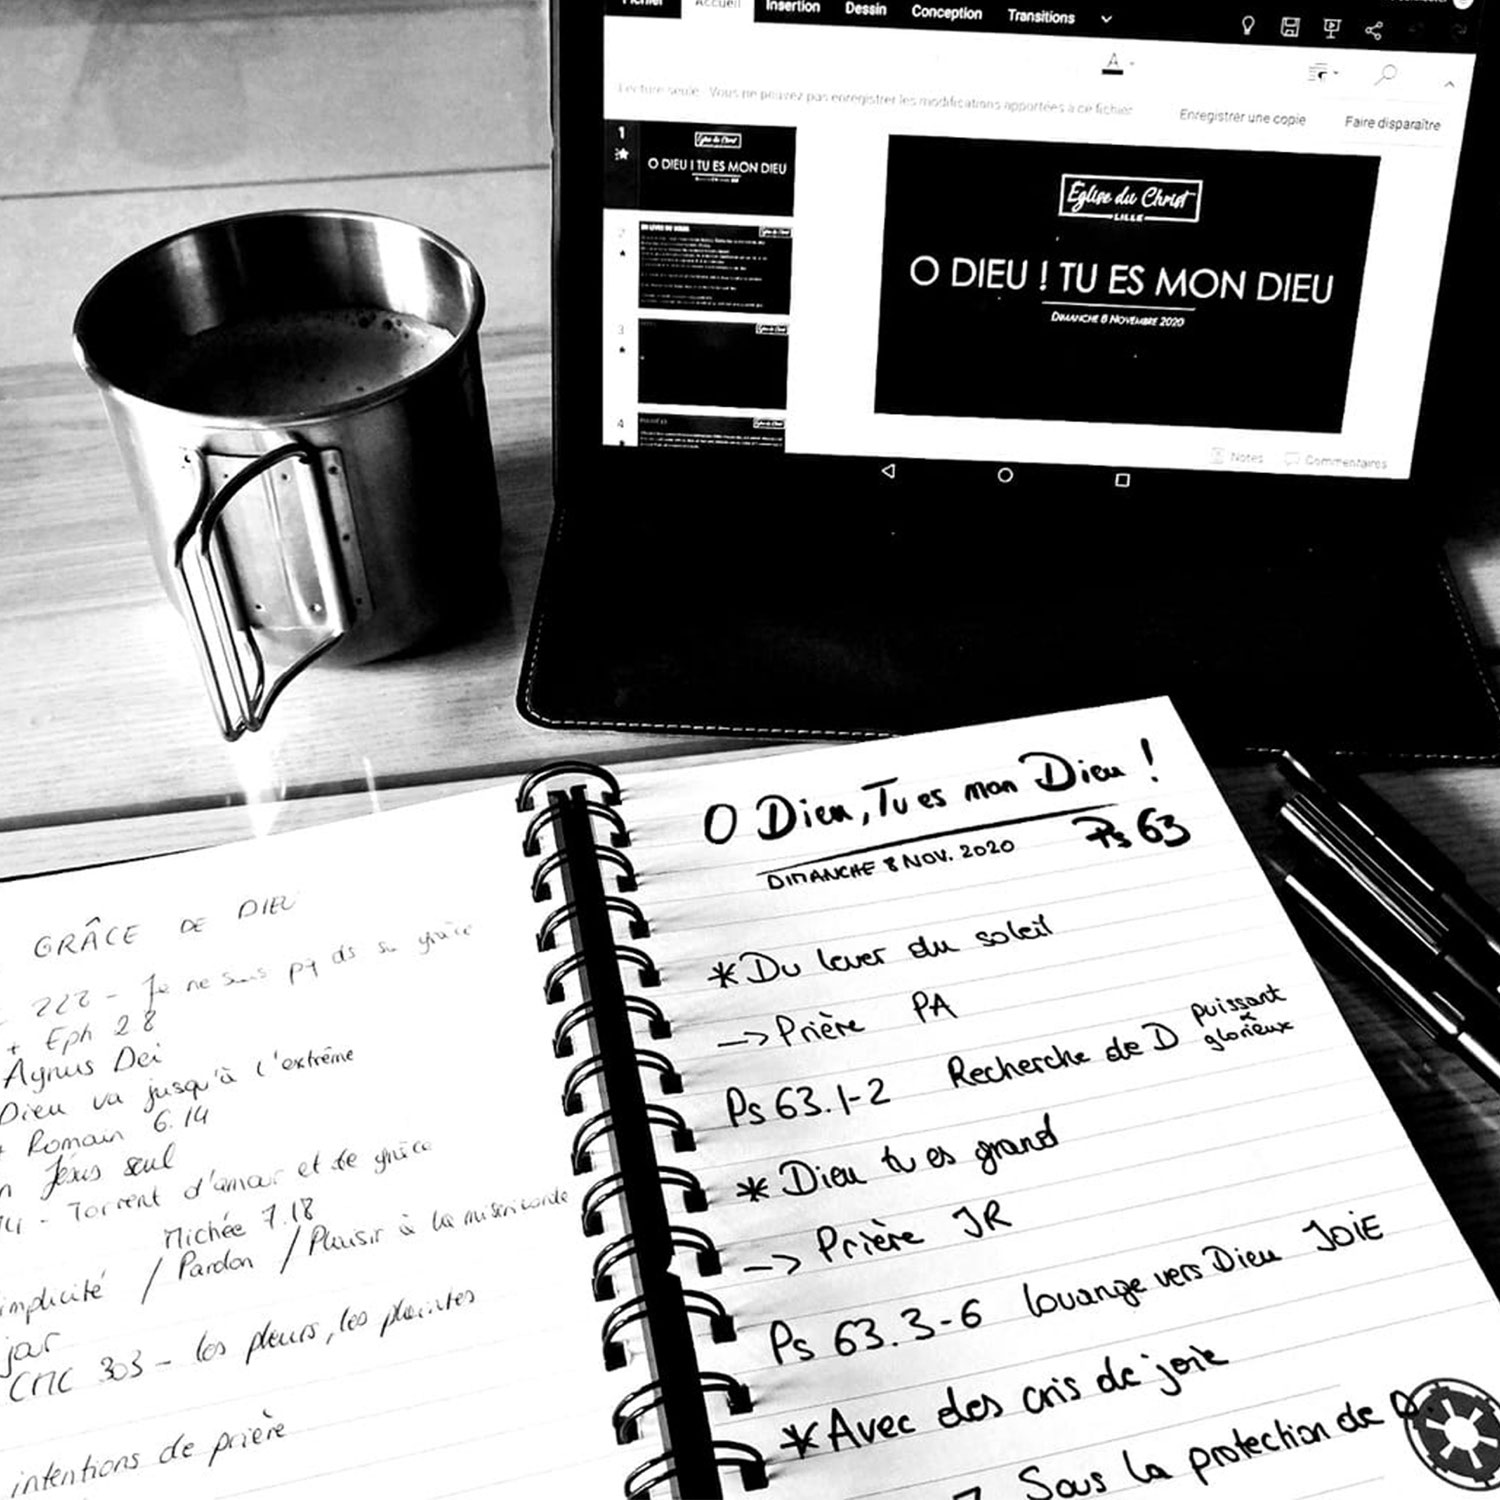 Fichier Accueil Insertion Dessin Conception Transitions
Lecture seule - Vous ne pouvez pas enregistrer les modifications apportées à ce fichier.
Enregistrer une copie Faire disparaître
1
Église du Christ
O DIEU ! TU ES MON DIEU
2
3
4
Église du Christ
LILLE
O DIEU ! TU ES MON DIEU
DIMANCHE 8 NOVEMBRE 2020
Notes Commentaires
GRÂCE DE DIEU
222 - Je ne sais pq ds sa grâce
+ Eph 2 8
Agnus Dei
Dieu va jusqu'à l'extrême
+ Romain 6.14
Jésus seul
- Torrent d'amour et de grâce
Michée 7.18
/ Pardon / Plaisir à la miséricorde
CMC 303 - les pleurs, les plaintes
intentions de prière
O Dieu, Tu es mon Dieu !
DIMANCHE 8 NOV. 2020 Ps 63
* Du lever du soleil
-> Prière PA
Ps 63.1-2 Recherche de D puissant & glorieux
* Dieu tu es grand
-> Prière JR
Ps 63.3-6 louange vers Dieu JOIE
* Avec des cris de joie
Sous la protection de D